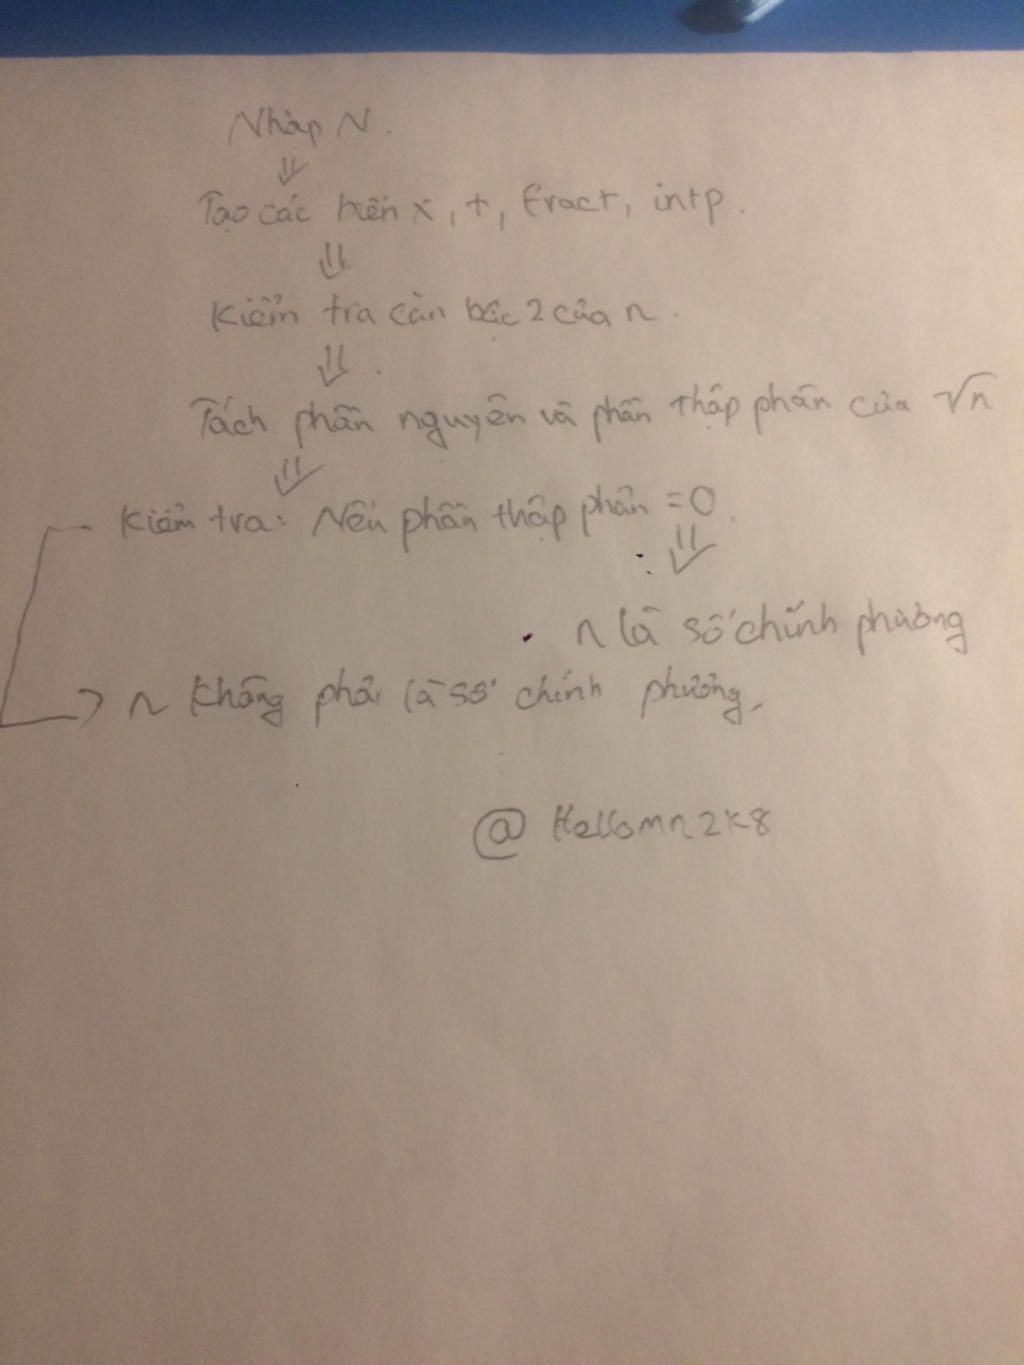 Nhập N.
Tạo các biến x, t, fract, intp.
Kiểm tra căn bậc 2 của n.
Tách phần nguyên và phần thập phân của √n
Kiểm tra: Nếu phần thập phân = 0.
n là số chính phương
n không phải là số chính phương.
@ Hellomn2k8